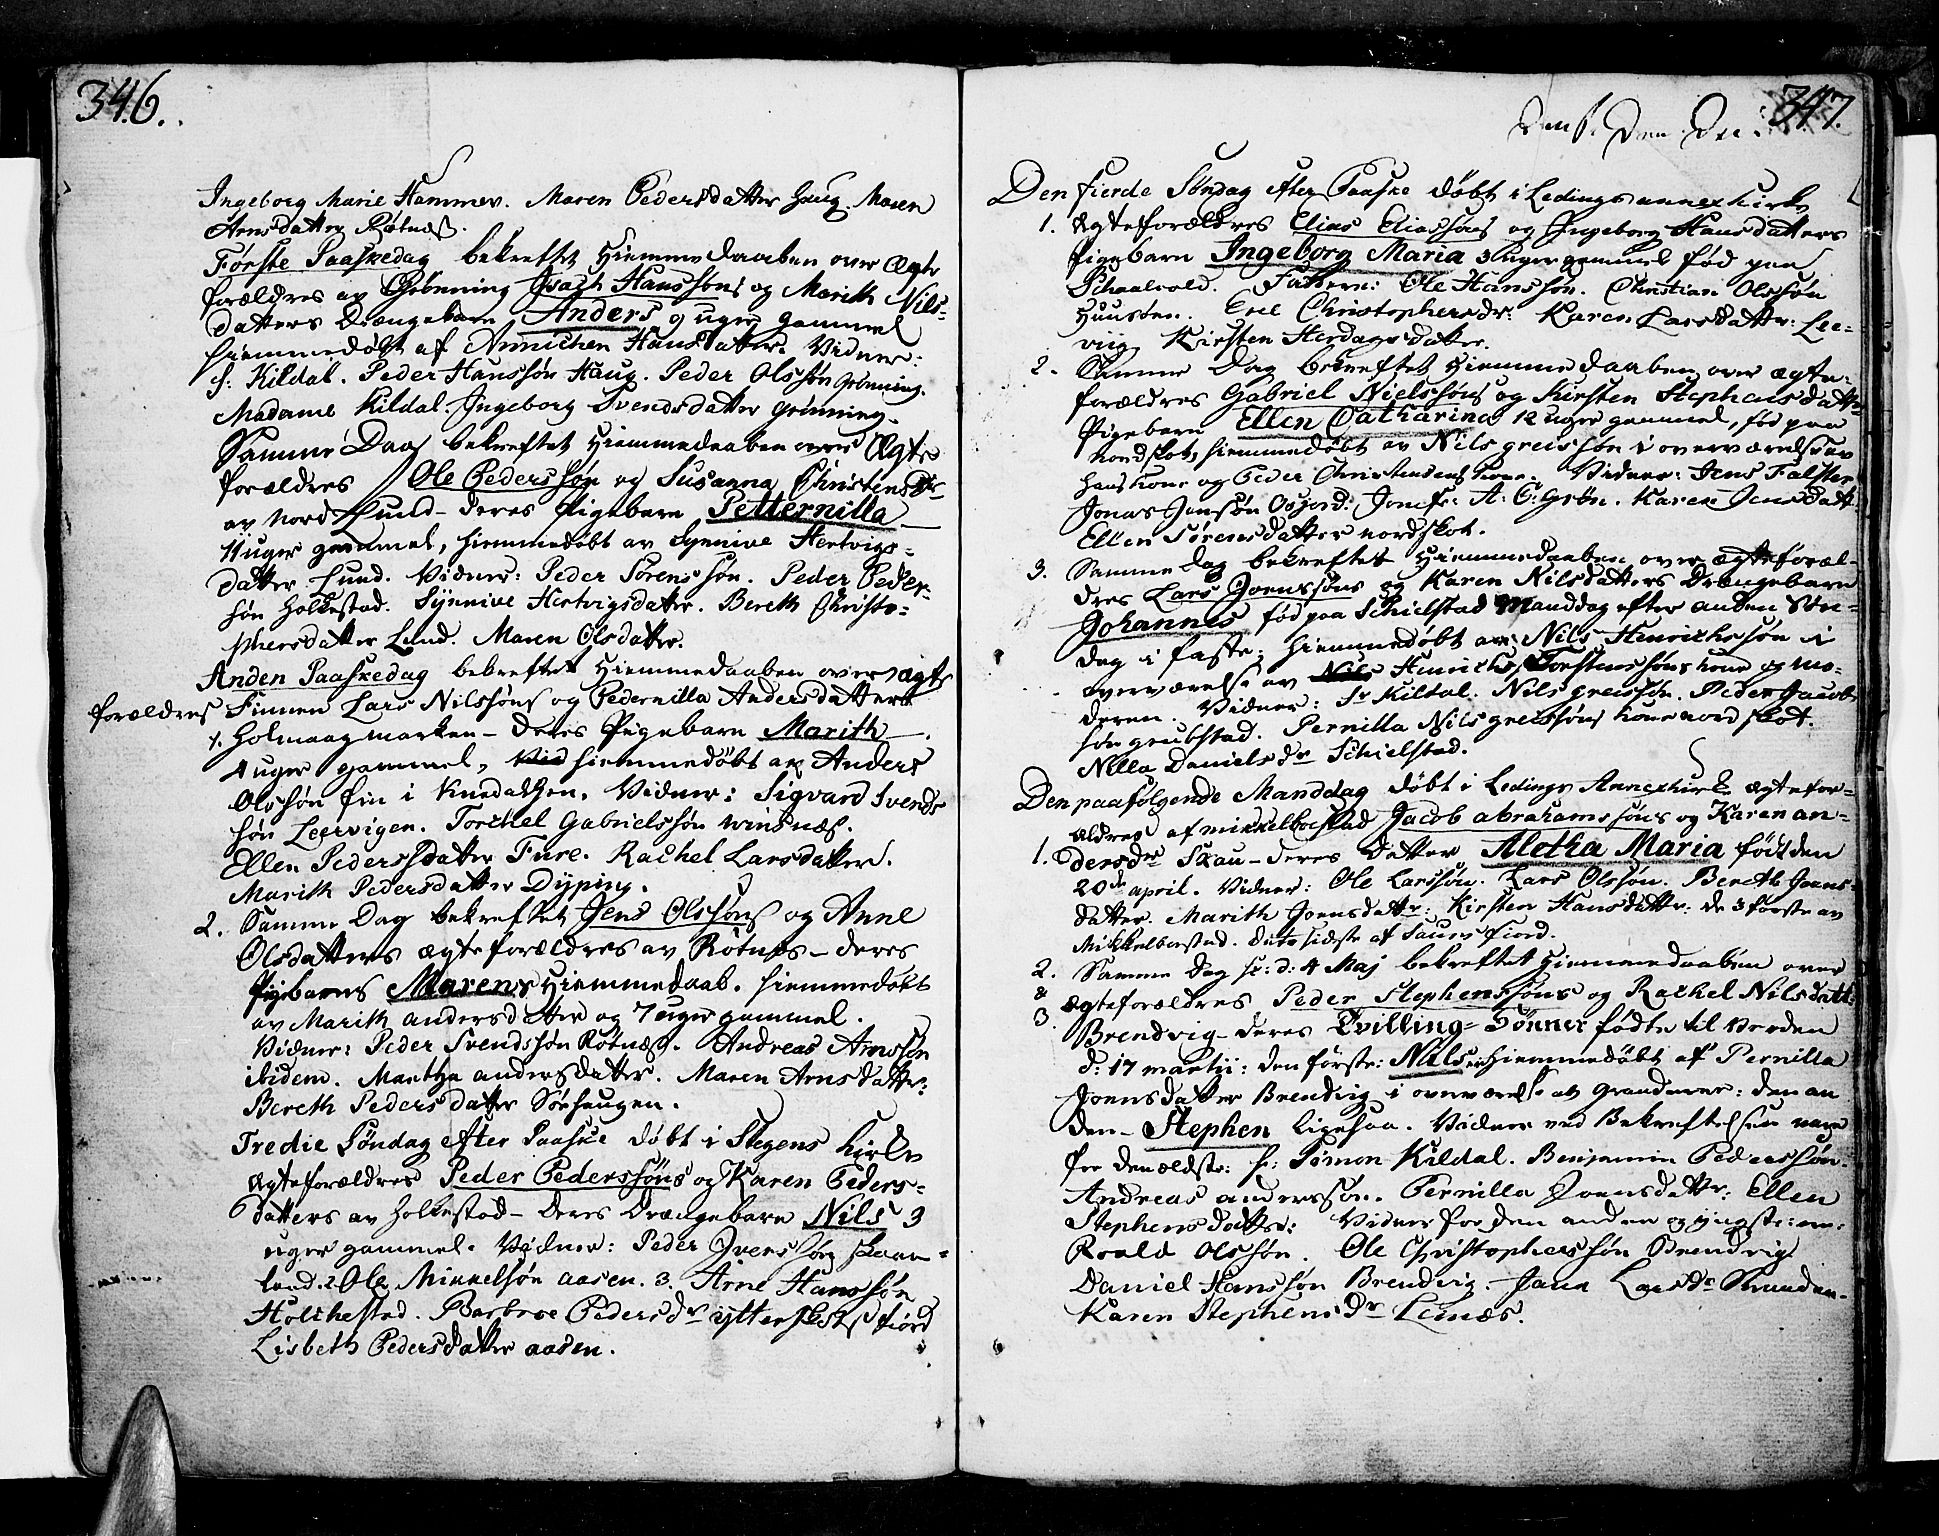 346.
Ingeborg Marie Hammer. Maren Pedersdatter Haug. Maren
Arnsdatter Røtnæs.
Første Paaskedag bekreftet Hiemmedaaben over Ægte
forældres av Grønning Isach Hanssøns og Marith Nils-
datters Drængebarn Anders 9 uger gammel
hiemmedøbt af Annichen Hansdatter. Vidner:
hr: Kildal. Peder Hanssøn Haug. Peder Olssøn Grønning.
Madame Kildal. Ingeborg Svendsdatter Grønning.
Samme Dag bekreftet Hiemmedaaben over Ægte
forældres Ole Pederssøn og Susanna Christensdr
av Nord Lund - deres Pigebarn Petternilla
11 uger gammel, hiemmedøbt av Synnive Hertvigs-
datter Lund. Vidner: Peder Sørenssøn. Peder Peder-
søn Holkestad. Synnive Hertvigsdatter. Bereth Christo-
phersdatter Lund. Maren Olsdatter.
Anden Paaskedag bekreftet Hiemmedaaben over ægte
forældres Finnen Lars Nilssøns og Pedernilla Andersdatters
1. Holmaagmarken - deres Pigebarn Marith
4 uger gammel, hiemmedøbt av Anders
Olssøn fin i Knedalsen. Vidner: Sigvard Svends
søn Leervigen. Torchel Gabrielssøn winsnæs.
Ellen Pedersdatter Fure. Rachel Larsdatter.
Marith Pedersdatter Dyping.
2. Samme Dag bekreftet Jens Olssøns og Anne
Olsdatters ægteforældres av Røtnæs - deres
Pigebarns Marens Hiemmedaab. hiemmedøbt
av Marith andersdatter og 7 uger gammel.
Vidner: Peder Svendssøn Røtnæs. Andreas Arnssøn
ibidem. Martha andersdatter. Maren Arnsdatter:
Bereth Pedersdatter Sørhaugen.
Tredie Søndag efter Paaske døbt i Stegens Kirke
Ægteforældres Peder Pederssøns og Karen Peders-
datters av Holkestad - deres Drængebarn Nils 3
uger gammel. Vidner: Peder Iverssøn Skaan-
land. 2 Ole Mikkelsøn aasen. 3. Arne Hanssøn
Holchestad. Barbroe Pedersdr ytterflest fiord
Lisbeth Pedersdatter aasen.
347.
Den fierde Søndag efter Paaske døbt i Ledings annexkirke
1. Ægteforældres Elias Eliassøns og Ingeborg Hansdatters
Pigebarn Ingeborg Maria 3 uger gammel fød paa
Schaalvold. Faddere: Ole Hanssøn. Christian Olssøn
Huusøen. Christophersdr: Karen Larsdatter: Lee-
viig. Kirsten Herdagsdatter.
2. Samme Dag bekreftet Hiemmedaaben over ægte-
forældres Gabriel Nielssøns og Kirsten Stephensdatters
Pigebarn Ellen Catharina 12 uger gammel, fød paa
Nordskot, hiemmedøbt av Nils greissøn i overværelse av
hans kone og Peder Christensens kone. Vidner: Jens Falster
Jonas Jenssøn Osjord. Jomfr: A: C: Grøn. Karen Jensdatt
Ellen Sørensdatter nordskot.
3. Samme Dag bekreftet Hiemmedaaben over ægteforæl-
dres Lars Joenssøns og Karen Nilsdatters Drængebarn
Johannes fød paa Schielstad Manddag efter anden Søn-
dag i faste; hiemmedøbt av Nils Henrichssøn i
overværelse av Henrichs Torstenssøns kone og mo-
deren. Vidner: Sr Kildal. Nils greissøn. Peder Jacob
søn grubstad. Pernilla Nils greissøns kone nordskot.
Nilla Daniels dr Schielstad.
Den paafølgende Manddag døbt i Ledings Annexkirke ægtefor-
ældres af mikkelborstad Jacob abrahamssøns og Karen an-
1. dersdr Skau - deres Datter Aletha Maria født den
20de april. Vidner: Ole Larssøn. Lars Olssøn. Bereth Joens-
datter. Marith Joensdattr: Kirsten Hansdattr: de 3 første av
Mikkelborstad. de to sidste af Saursfiord.
2. Samme Dag sc: d: 4 Maj bekreftet Hiemmedaaben over
&
3. ægteforældres Peder Stephenssøns og Rachel Nilsdatt:
Brendvig - deres Tvilling-Sønner fødte til Verden
d: 17 martii: den første: Nils er hiemmedøbt af Pernilla
Joensdatter Brendvig i overværelse av Grander: den an
den - Stephen ligesaa. Vidner ved Bekreftelsen vare
for den ældste: hr: Simon Kildal. Benjamin Pederssøn.
Andreas anderssøn. Pernilla Joensdattr: Ellen
Stephensdatter: Vidner for den anden og yngste: ere:
Roald Olssøn. Ole Christopherssøn Brendvig
Daniel Hanssøn Brendvig. Jana Larsdr Strandan-
Karen Stephensdr Leinæs.